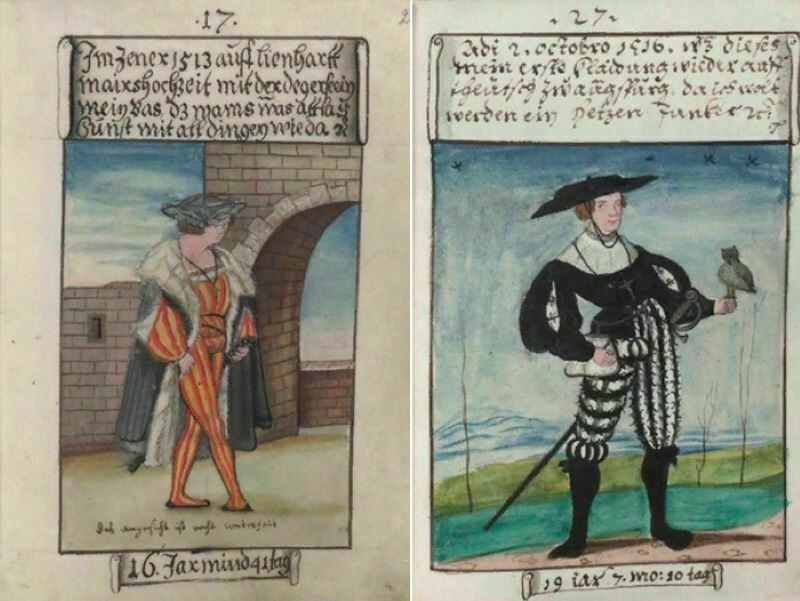 ·17·
Im Jener 1513 auff lienhartt
mairs hochzeit mit der degersein
mein bas, dz wams was attlas
mit all dingen wie da
das angesicht ist recht contrafeit
16. Jar mind 41 tag
2
·27·
Adi 2. octobro 1516. wz dieses
mein erste kladung wieder auff
zw augspurg, da ich wolt
werden ein Junker
19 iar 7. mo: 10 tag